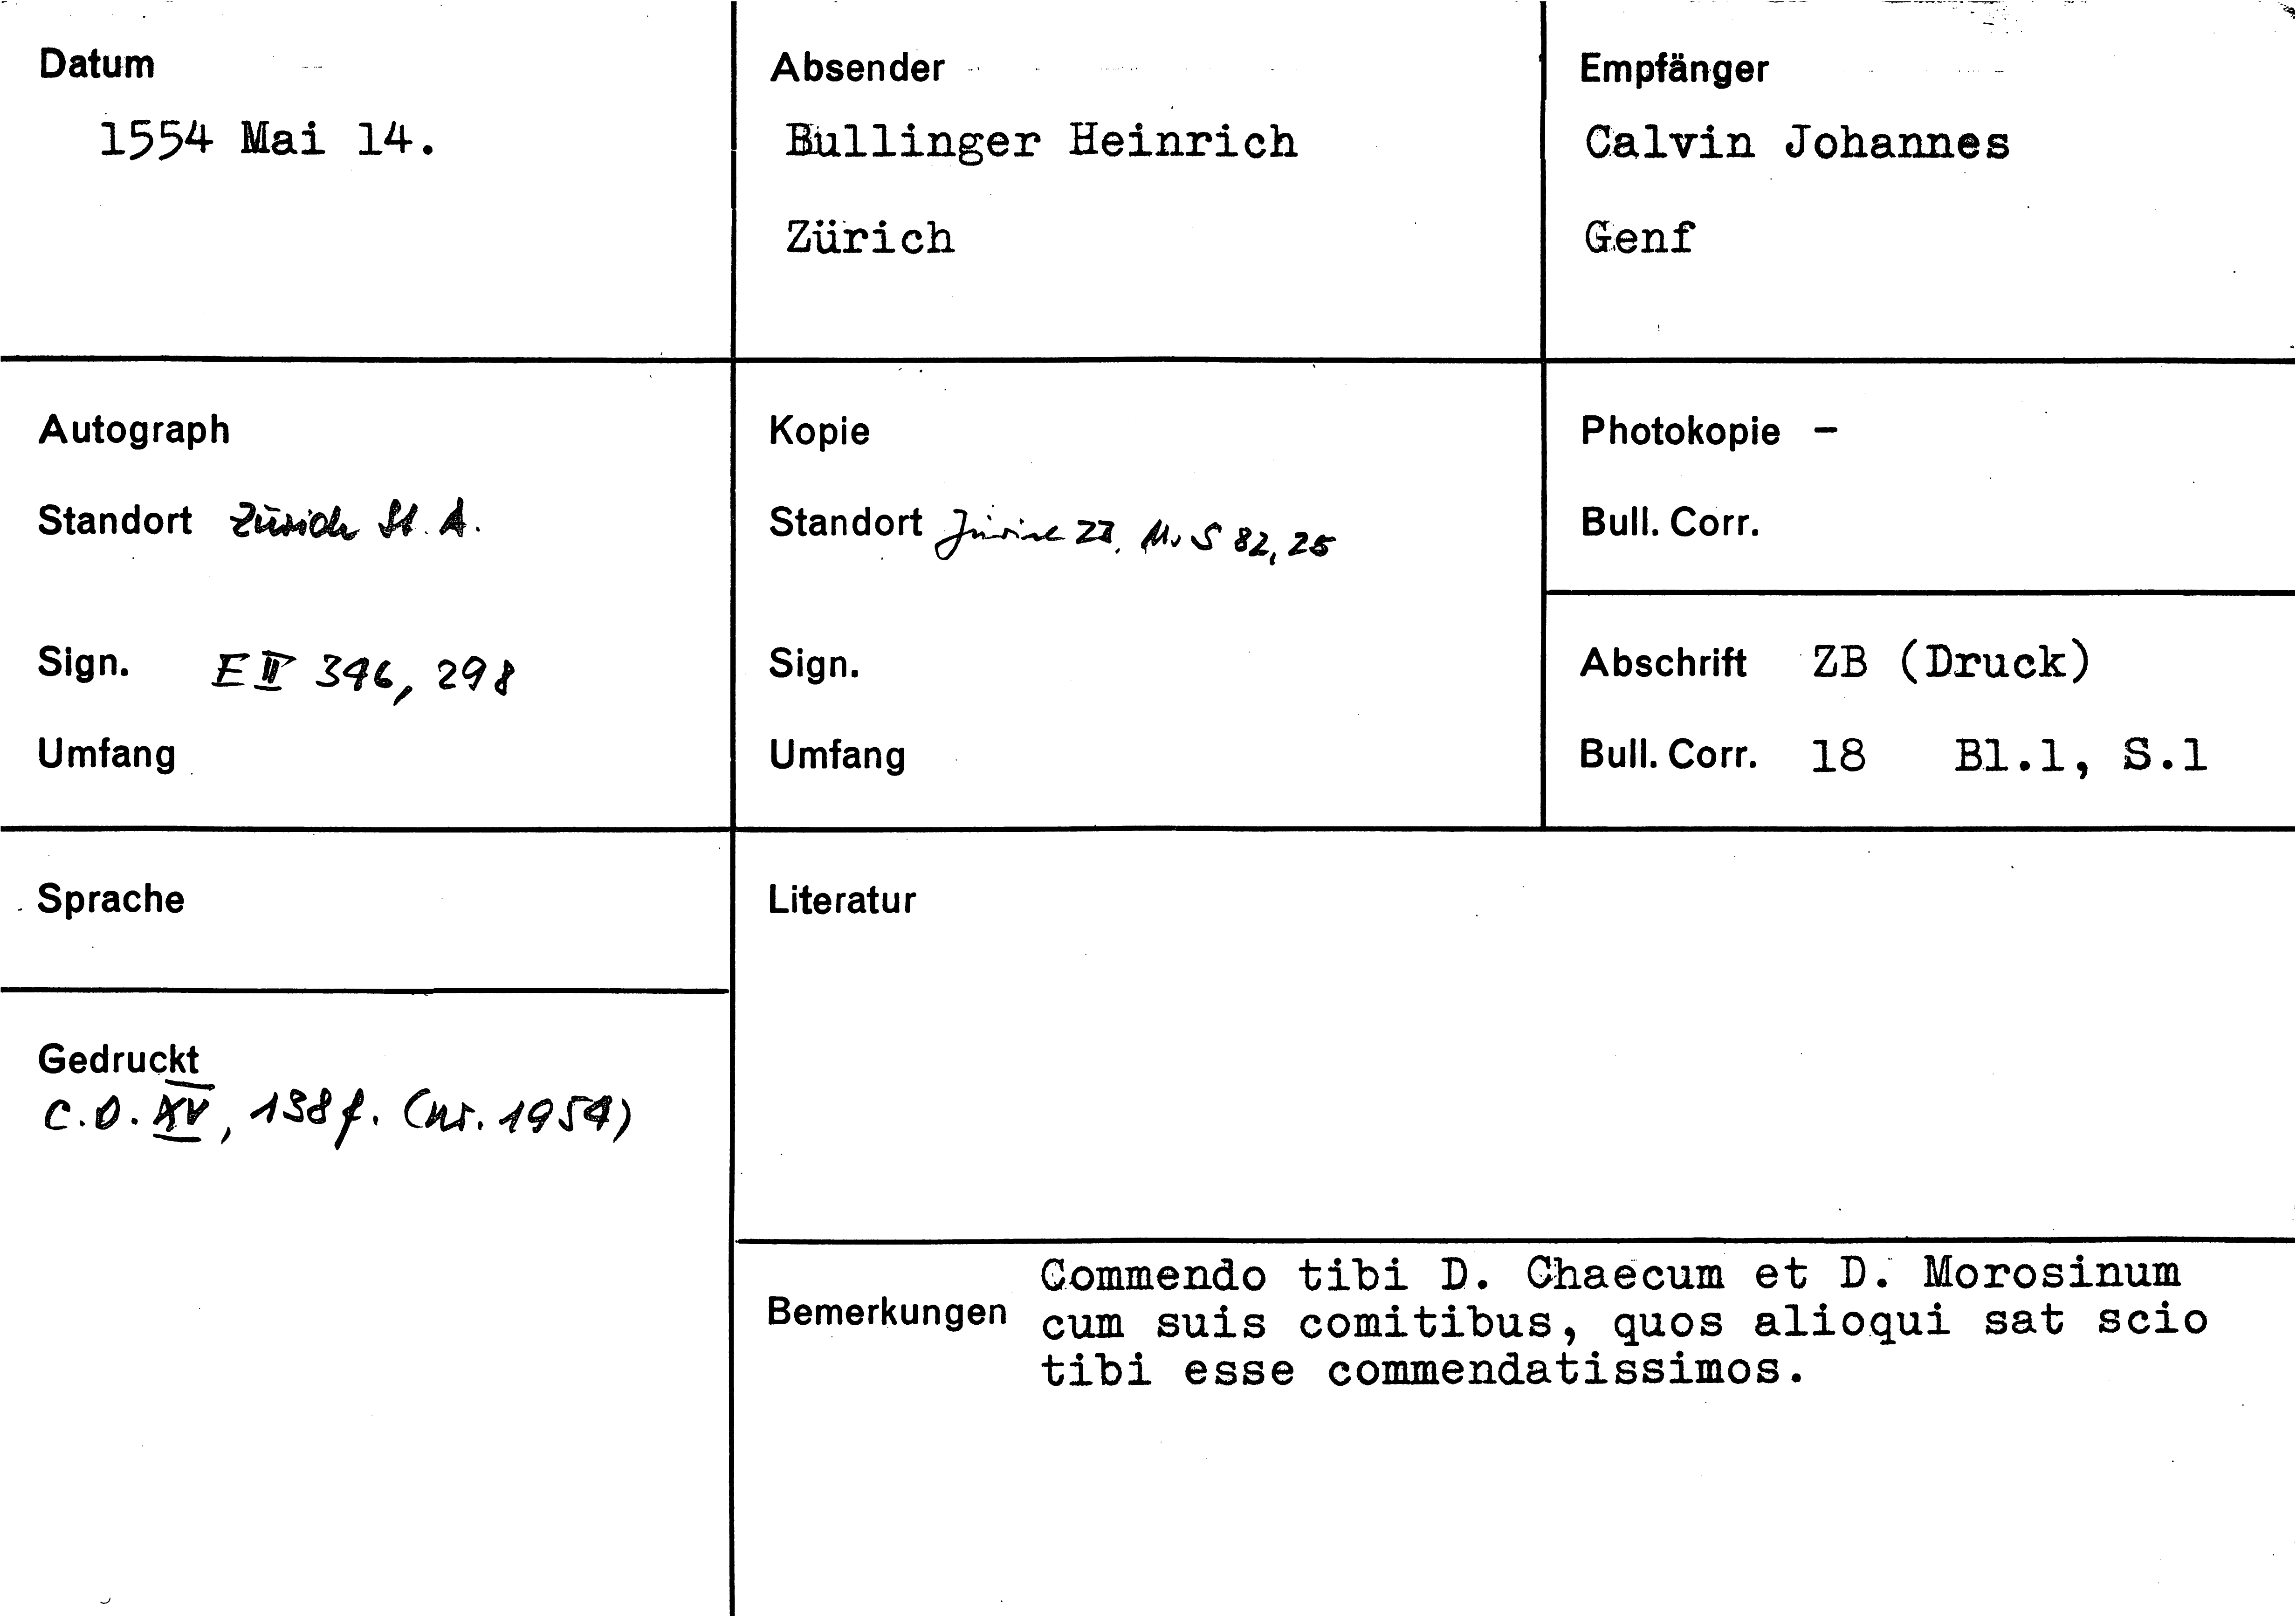 Datum
1554 Mai 14.
Absender
Bullinger Heinrich
Zürich
Empfänger
Calvin Johannes
Genf
Autograph
Standort Zürich St. A.
Sign. E II 346, 298
Umfang
Kopie
Standort Zürich ZB. Ms S 82, 25
Sign.
Umfang
Photokopie -
Bull. Corr.
Abschrift ZB (Druck)
Bull. Corr. 18 Bl.1, S.1
Sprache
Literatur
Gedruckt
C.O. XV, 138 f. (nr. 1954)
Bemerkungen
Commendo tibi D. Chaecum et D. Morosinum
cum suis comitibus, quos alioqui sat scio
tibi esse commendatissimos.